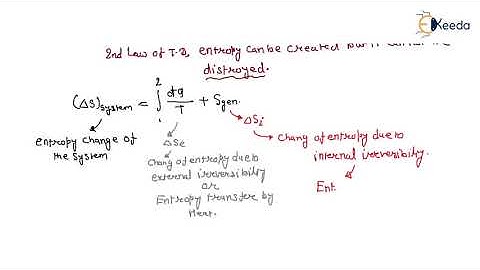 Ekeeda
2nd Law of T.D, entropy can be created but it cannot be
distroyed.
(ΔS)system = ∫₁² dq/T + Sgen.
ΔSe
ΔSi
entropy change of
the System
Chang of entropy due to
external irreversibility
or
Entropy transfer by
Heat.
Chang of entropy due to
internal irreversibility.
Ent